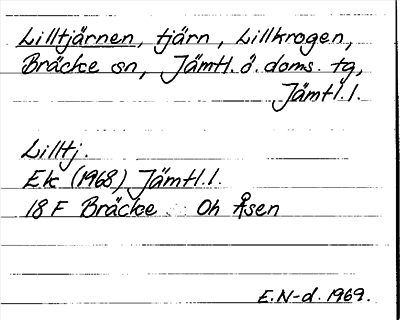 Lilltjärnen, tjärn, Lillkrogen,
Bräcke sn, Jämtl. ö. doms. tg,
Jämtl. l.
Lilltj.
Ek (1968) Jämtl. l.
18 F Bräcke Oh Åsen
E. N-d. 1969.